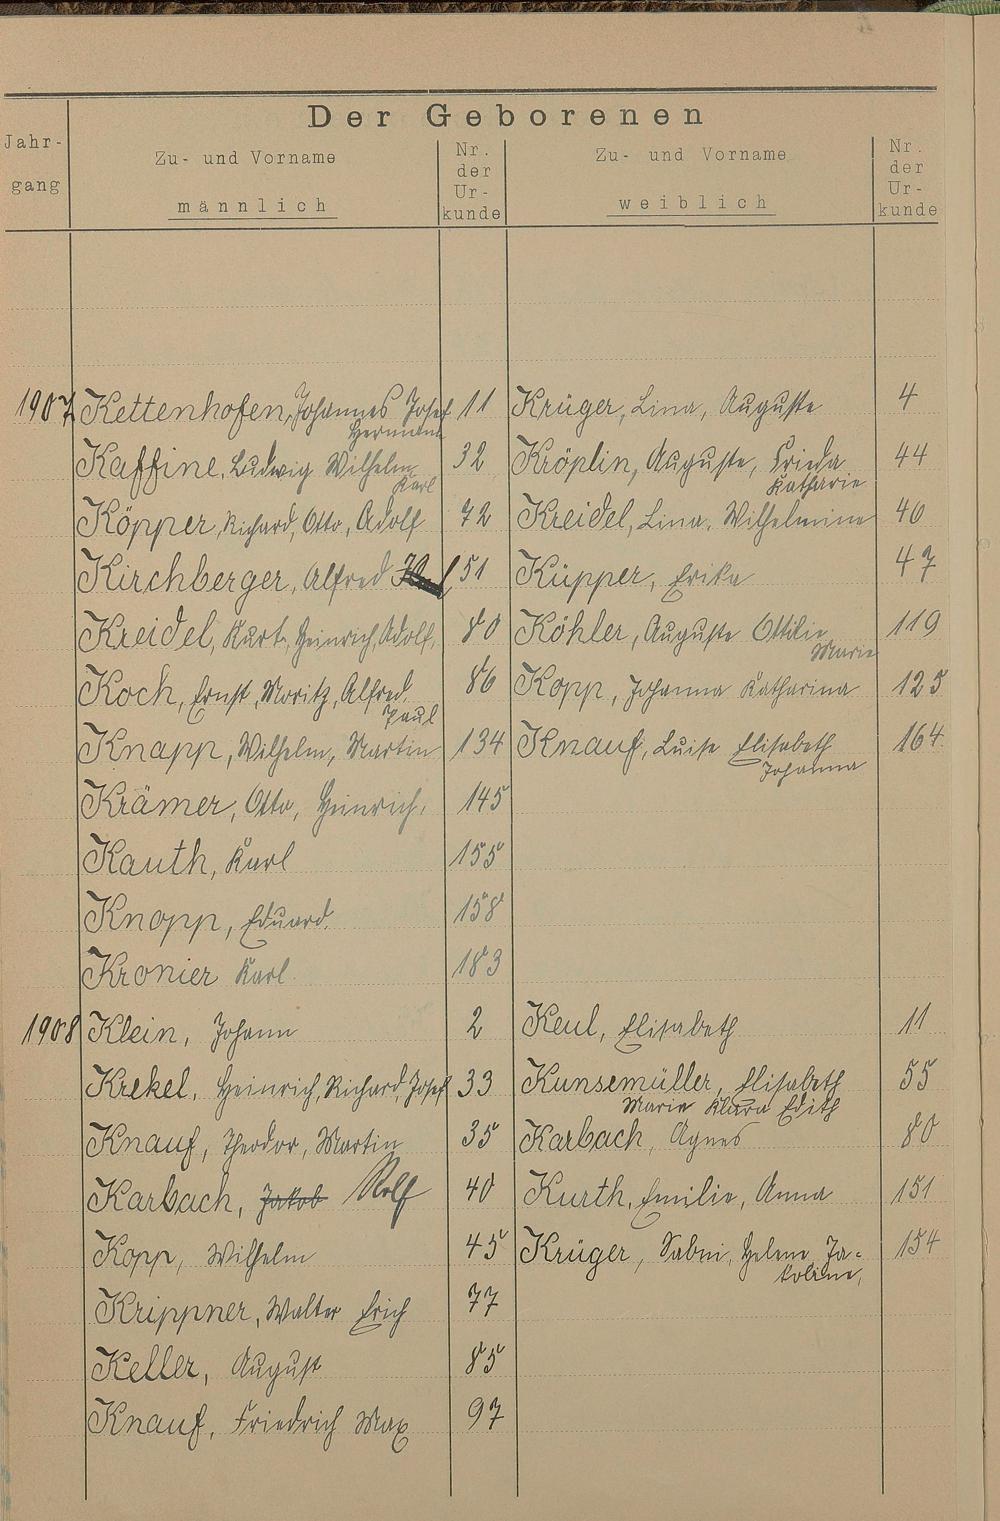 Der Geborenen
Jahr-
gang
Zu- und Vorname
männlich
Nr.
der
Ur-
kunde
Zu- und Vorname
weiblich
Nr.
der
Ur-
kunde
1907 Kettenhofen, Johannes Josef 11 Krüger, Lina, Auguste 4
Hermann
Kaffine, Ludwig Wilhelm 32 Kröplin, Auguste, Frieda 44
Karl Katharie
Köpper, Richard, Otto, Adolf 72 Kreidel, Lina, Wilhelmine 46
Kirchberger, Alfred 51 Küpper, Erika 47
Kreidel, Kurt, Heinrich, Adolf, 80 Köhler, Auguste Ottilie 119
Marie
Koch, Ernst, Moritz, Alfred 86 Kopp, Johanna Katharina 125
Paul
Knapp, Wilhelm, Martin 134 Knauf, Luise Elisabeth 164
Johanna
Krämer, Otto, Heinrich, 145
Kauth, Karl 155
Knopp, Eduard. 158
Kronier Karl 183
1908 Klein, Johann 2 Keul, Elisabeth 11
Krekel, Heinrich, Richard, Josef 33 Kunsemüller, Elisabeth 55
Marie Klara Edith
Knauf, Theodor, Martin 35 Karbach, Agnes 80
Karbach, Jakob Rolf 40 Kurth, Emilie, Anna 151
Kopp, Wilhelm 45 Krüger, Sabni, Helene Ja- 154
kobine,
Krippner, Walter Erich 77
Keller, August 85
Knauf, Friedrich Max 97